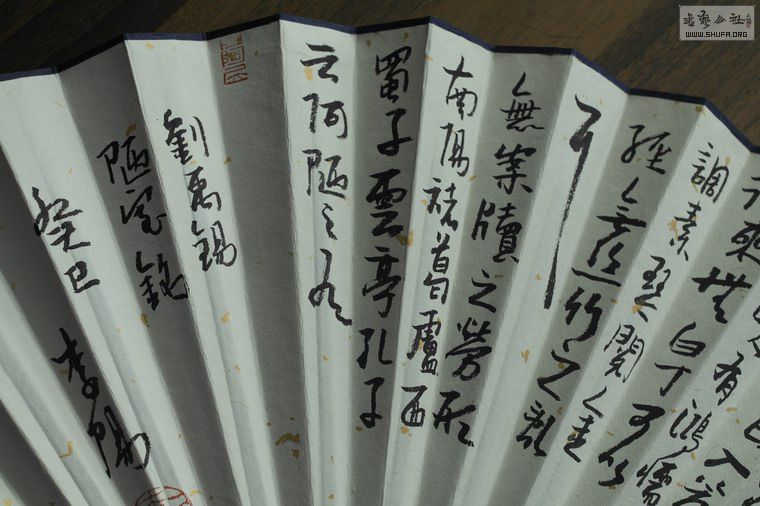 色入簾
有鴻儒
來無白丁可以
調素琴閱金
經無絲竹之亂
耳
無案牘之勞形
南陽諸葛廬西
蜀子雲亭孔子
云何陋之有
劉禹錫
陋室銘
癸巳
李陽
書藝公社
WWW.SHUFA.ORG